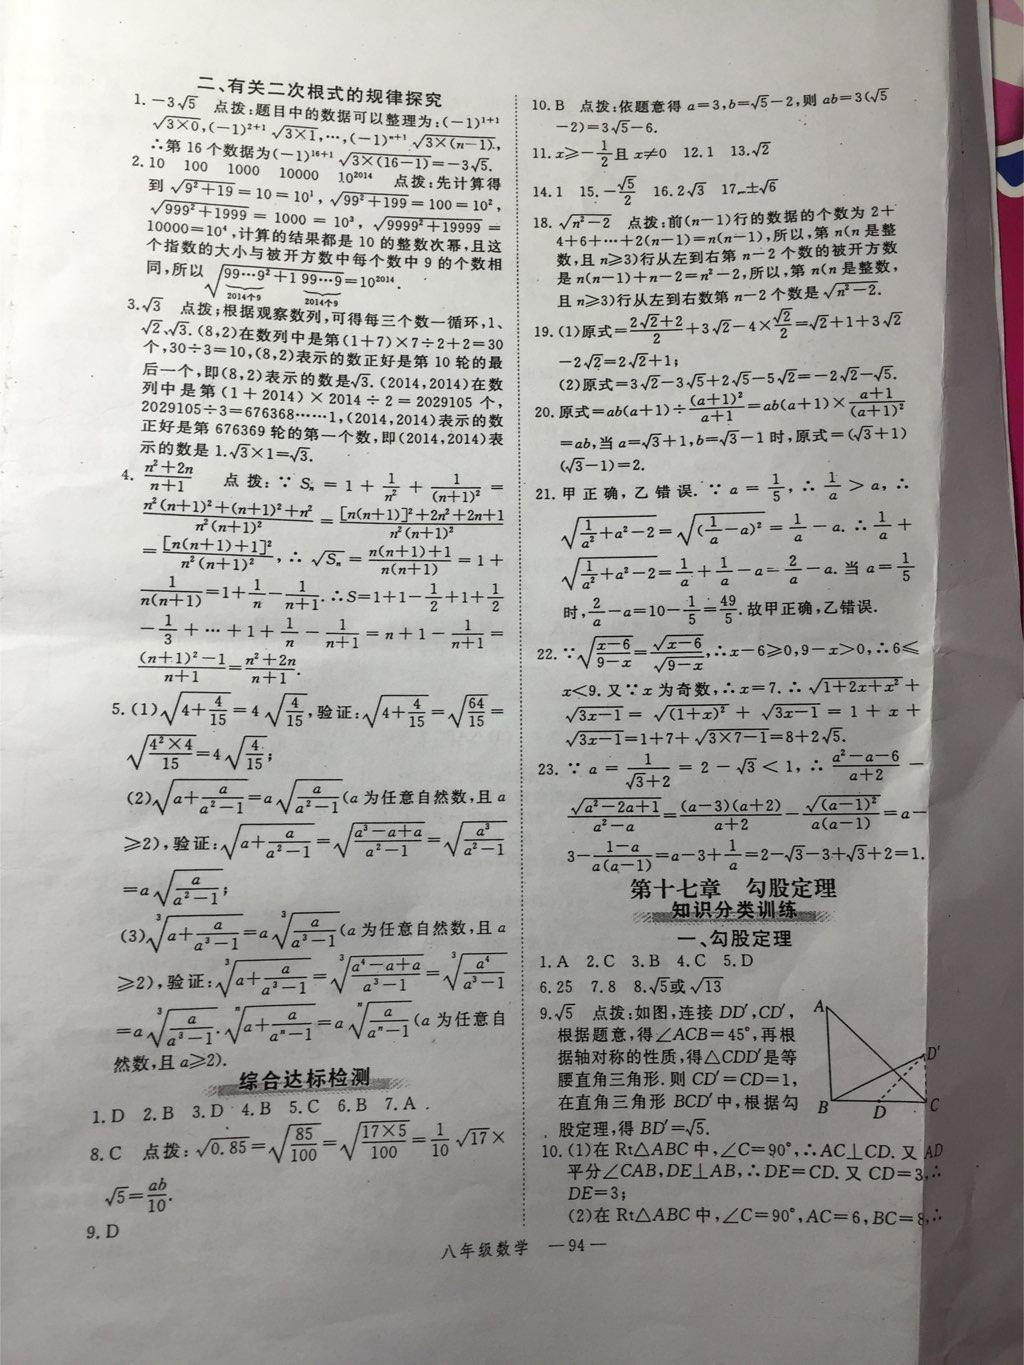 二、有关二次根式的规律探究
1. −3√5　点拨:题目中的数据可以整理为:(−1)¹⁺¹
√(3×0),(−1)²⁺¹ √(3×1),…,(−1)ⁿ⁺¹ √(3×(n−1)),
∴第 16 个数据为(−1)¹⁶⁺¹ √(3×(16−1))=−3√5.
2. 10　100　1000　10000　10²⁰¹⁴　点拨:先计算得
到 √(9²+19)=10=10¹, √(99²+199)=100=10²,
√(999²+1999)=1000=10³, √(9999²+19999)=
10000=10⁴,计算的结果都是 10 的整数次幂,且这
个指数的大小与被开方数中每个数中 9 的个数相
同,所以 √(99…9²+1 99…9)=10²⁰¹⁴.
2014个9　2014个9
3. √3　点拨:根据观察数列,可得每三个数一循环,1、
√2、√3. (8,2)在数列中是第(1+7)×7÷2+2=30
个,30÷3=10,(8,2)表示的数正好是第 10 轮的最
后一个,即(8,2)表示的数是√3. (2014,2014)在数
列中是第(1+2014)×2014÷2=2029105 个,
2029105÷3=676368……1,(2014,2014)表示的数
正好是第 676369 轮的第一个数,即(2014,2014)表
示的数是 1. √3×1=√3.
4. (n²+2n)/(n+1)　点拨:∵ Sₙ=1+1/n²+1/(n+1)²=
(n²(n+1)²+(n+1)²+n²)/(n²(n+1)²)=([n(n+1)]²+2n²+2n+1)/(n²(n+1)²)
=[n(n+1)+1]²/(n²(n+1)²),∴ √Sₙ=(n(n+1)+1)/(n(n+1))=1+
1/(n(n+1))=1+1/n−1/(n+1). ∴S=1+1−1/2+1+1/2
−1/3+…+1+1/n−1/(n+1)=n+1−1/(n+1)=
((n+1)²−1)/(n+1)=(n²+2n)/(n+1).
5. (1)√(4+4/15)=4√(4/15),验证:√(4+4/15)=√(64/15)=
√(4²×4/15)=4√(4/15);
(2)√(a+a/(a²−1))=a√(a/(a²−1))(a 为任意自然数,且 a
≥2),验证:√(a+a/(a²−1))=√((a³−a+a)/(a²−1))=√(a³/(a²−1))
=a√(a/(a²−1));
(3)³√(a+a/(a³−1))=a³√(a/(a³−1))(a 为任意自然数,且 a
≥2),验证:³√(a+a/(a³−1))=³√((a⁴−a+a)/(a³−1))=³√(a⁴/(a³−1))
=a³√(a/(a³−1)). ⁿ√(a+a/(aⁿ−1))=aⁿ√(a/(aⁿ−1))(a 为任意自
然数,且 a≥2).
综合达标检测
1. D　2. B　3. D　4. B　5. C　6. B　7. A
8. C　点拨:√0.85=√(85/100)=√(17×5/100)=1/10 √17×
√5=ab/10.
9. D
10. B　点拨:依题意得 a=3,b=√5−2,则 ab=3(√5
−2)=3√5−6.
11. x≥−1/2且 x≠0　12. 1　13. √2
14. 1　15. −√5/2　16. 2√3　17. ±√6
18. √(n²−2)　点拨:前(n−1)行的数据的个数为 2+
4+6+…+2(n−1)=n(n−1),所以,第 n(n 是整
数,且 n≥3)行从左到右第 n−2 个数的被开方数
是 n(n−1)+n−2=n²−2,所以,第 n(n 是整数,
且 n≥3)行从左到右数第 n−2 个数是 √(n²−2).
19. (1)原式=(2√2+2)/2+3√2−4×√2/2=√2+1+3√2
−2√2=2√2+1;
(2)原式=3√2−3√5+2√5−5√2=−2√2−√5.
20. 原式=ab(a+1)÷(a+1)²/(a+1)=ab(a+1)×(a+1)/(a+1)²
=ab,当 a=√3+1,b=√3−1 时,原式=(√3+1)
(√3−1)=2.
21. 甲正确,乙错误. ∵ a=1/5,∴ 1/a>a,∴
√(1/a²+a²−2)=√((1/a−a)²)=1/a−a. ∴ 1/a+
√(1/a²+a²−2)=1/a+1/a−a=2/a−a. 当 a=1/5
时,2/a−a=10−1/5=49/5. 故甲正确,乙错误.
22. ∵√((x−6)/(9−x))=√(x−6)/√(9−x),∴x−6≥0,9−x>0,∴6≤
x<9. 又∵x 为奇数,∴x=7. ∴ √(1+2x+x²)+
√(3x−1)=√((1+x)²)+√(3x−1)=1+x+
√(3x−1)=1+7+√(3×7−1)=8+2√5.
23. ∵ a=1/(√3+2)=2−√3<1,∴ (a²−a−6)/(a+2)−
√(a²−2a+1)/(a²−a)=(a−3)(a+2)/(a+2)−√((a−1)²)/(a(a−1))=a−
3−(1−a)/(a(a−1))=a−3+1/a=2−√3−3+√3+2=1.
第十七章　勾股定理
知识分类训练
一、勾股定理
1. A　2. C　3. B　4. C　5. D
6. 25　7. 8　8. √5或√13
9. √5　点拨:如图,连接 DD′,CD′,
根据题意,得∠ACB=45°,再根
据轴对称的性质,得△CDD′是等
腰直角三角形. 则 CD′=CD=1,
在直角三角形 BCD′中,根据勾
股定理,得 BD′=√5.
A
D′
B
D
C
10. (1)在 Rt△ABC 中,∠C=90°,∴AC⊥CD. 又 AD
平分∠CAB,DE⊥AB,∴DE=CD. 又 CD=3,∴
DE=3;
(2)在 Rt△ABC 中,∠C=90°,AC=6,BC=8,∴
八年级数学　—94—